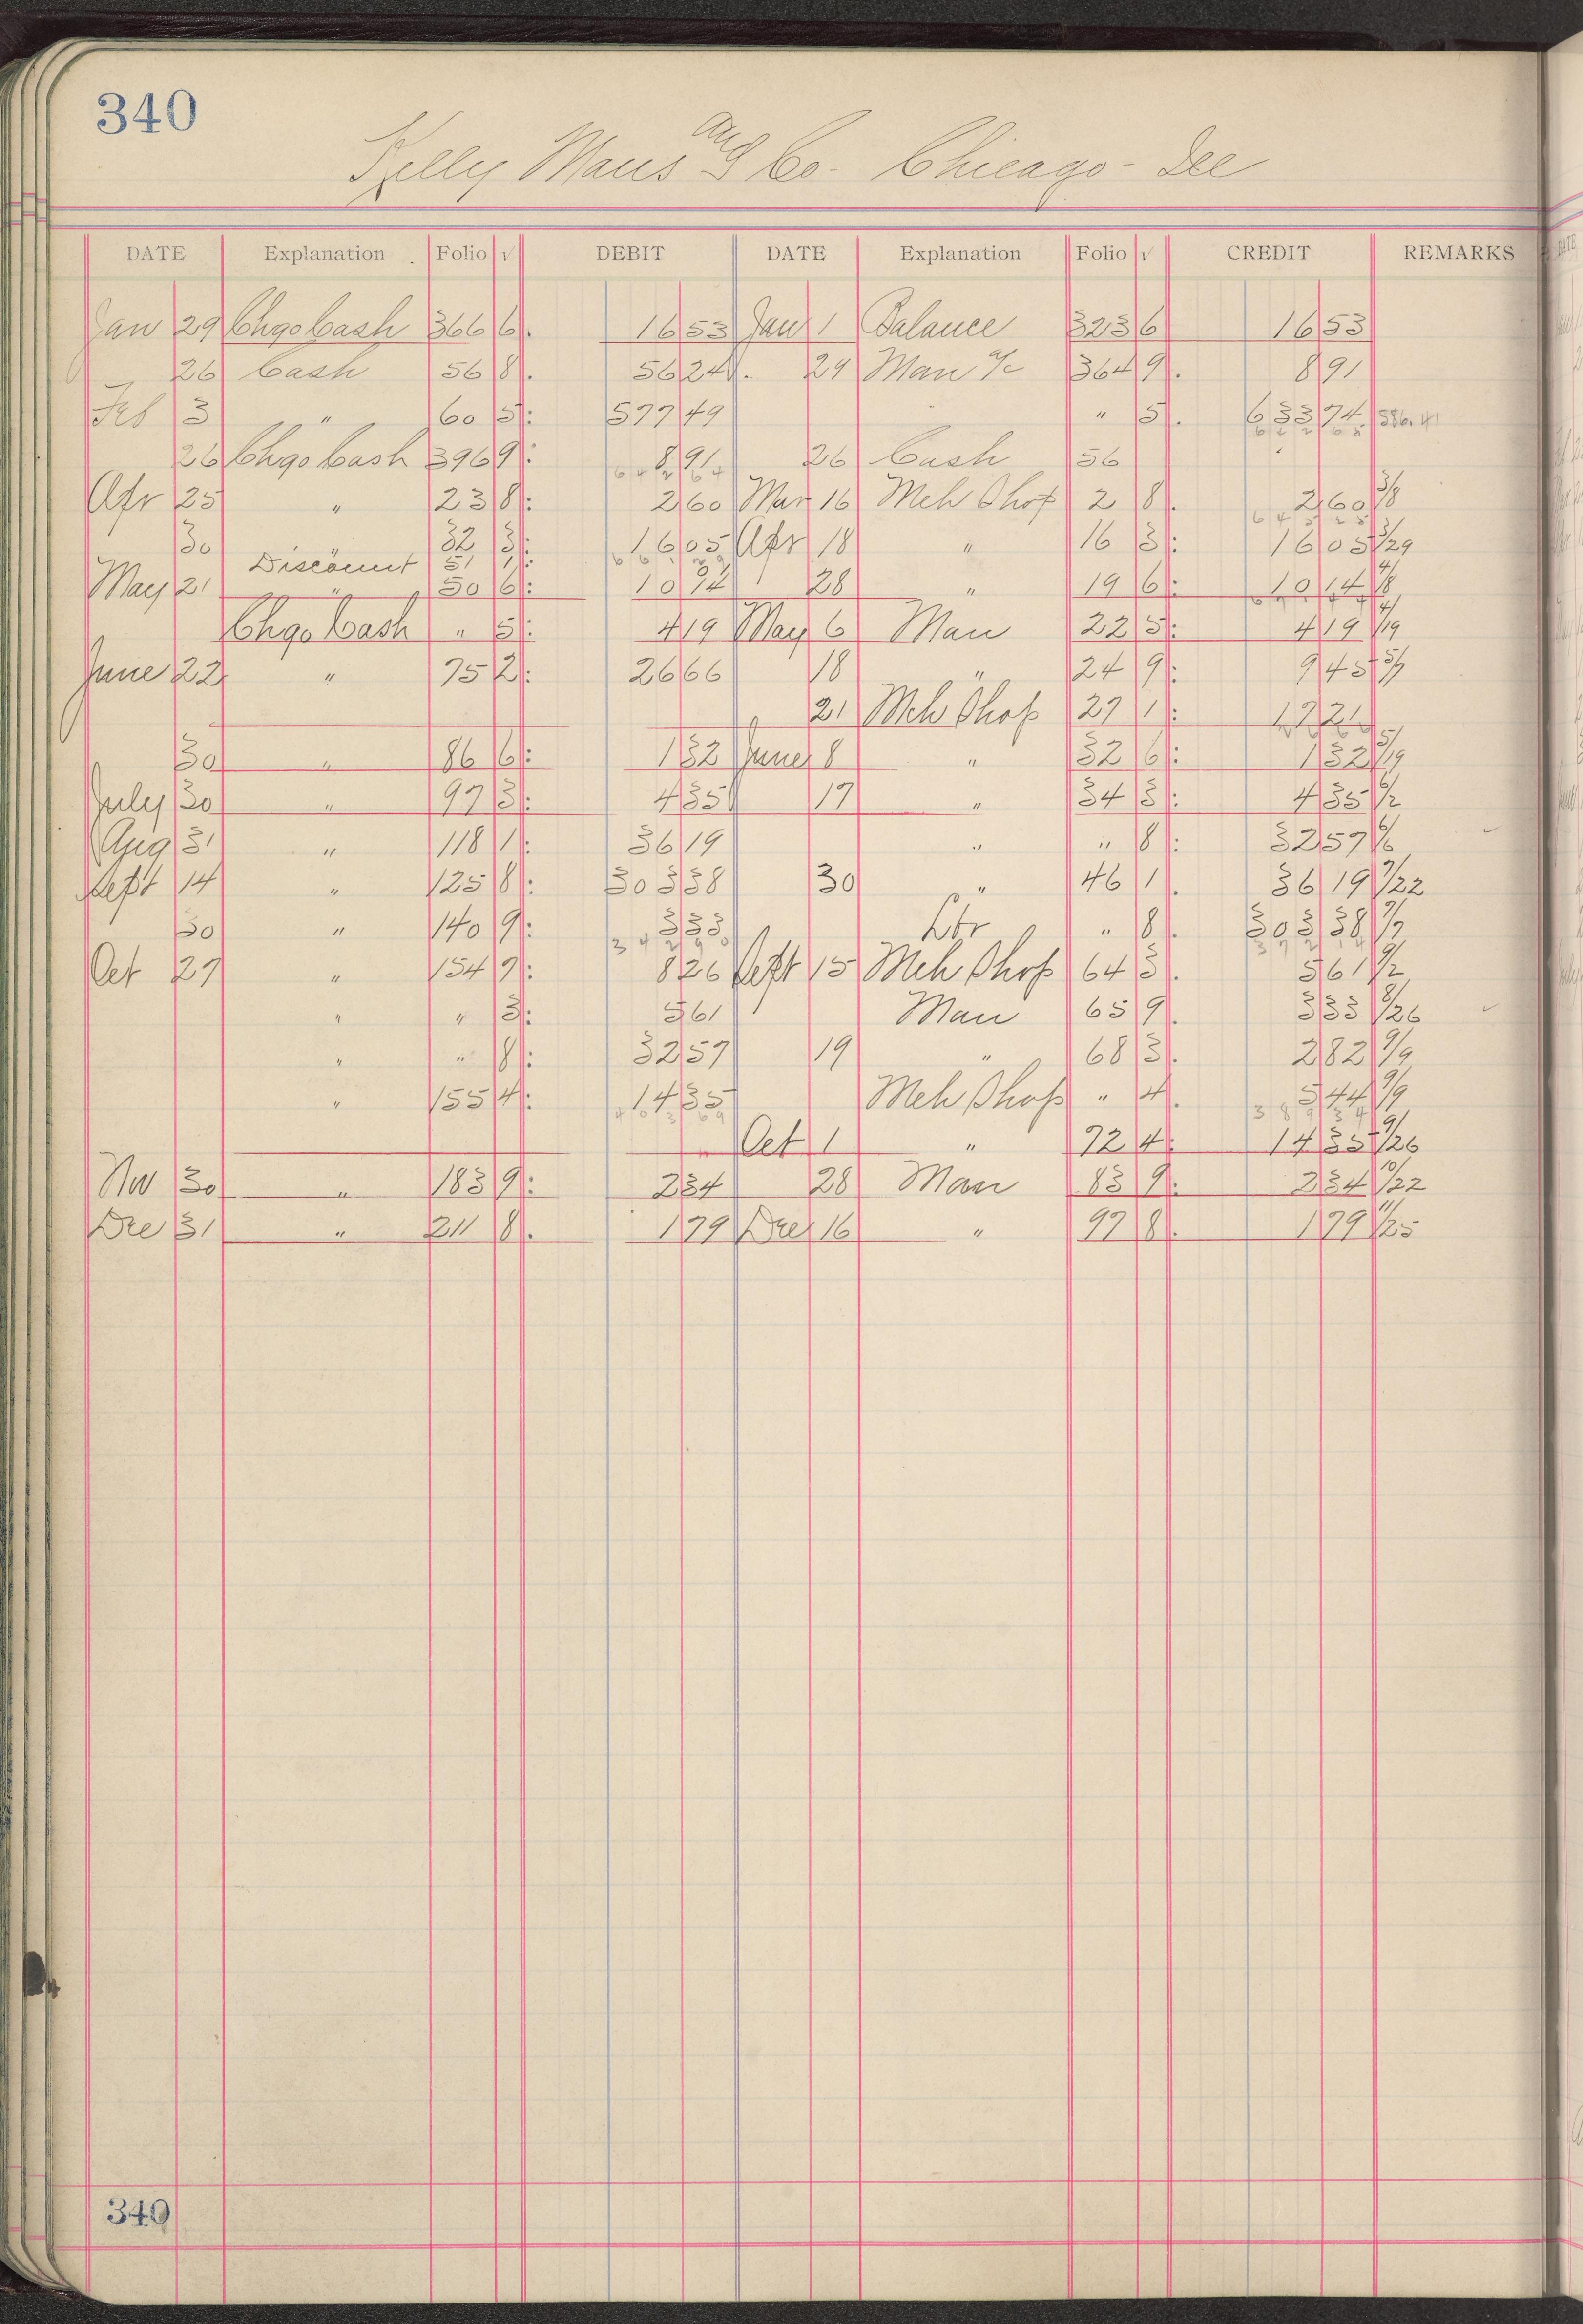 340
Kelly Maus and Co - Chicago - Ill
DATE Explanation Folio √ DEBIT DATE Explanation Folio √ CREDIT REMARKS
Jan 29 Chgo Cash 366 6 16 53 Jan 1 Balance 323 6 16 53
26 Cash 56 8 56 24 29 Man a/c 364 9 8 91
Feb 3 " 60 5 577 49 " 5 633 74 586.41
26 Chgo Cash 396 9 8 91 26 Cash 56
Apr 25 " 23 8 2 60 Mar 16 Mch Shop 2 8 2 60 3/8
30 " 32 3 16 05 Apr 18 " 16 3 16 05 3/29
Discount 51 1
May 21 " 50 6 10 14 28 " 19 6 10 14 4/8
Chgo Cash " 5 4 19 May 6 Man 22 5 4 19 4/19
June 22 " 75 2 26 66 18 " 24 9 9 45 5/7
21 Mch Shop 27 1 17 21
30 " 86 6 1 32 June 8 " 32 6 1 32 5/19
July 30 " 97 3 4 35 17 " 34 3 4 35 6/2
Aug 31 " 118 1 36 19 " " 8 32 57 6/6
Sept 14 " 125 8 303 38 30 " 46 1 36 19 7/22
30 " 140 9 3 33 Lbr " 8 303 38 7/7
Oct 27 " 154 7 8 26 Sept 15 Mch Shop 64 3 5 61 9/2
" " 3 5 61 Man 65 9 3 33 8/26
" " 8 32 57 19 " 68 3 2 82 9/9
" 155 4 14 35 Mch Shop " 4 5 44 9/9
Oct 1 " 72 4 14 35 9/26
Nov 30 " 183 9 2 34 28 Man 83 9 2 34 10/22
Dec 31 " 211 8 1 79 Dec 16 " 97 8 1 79 11/25
340